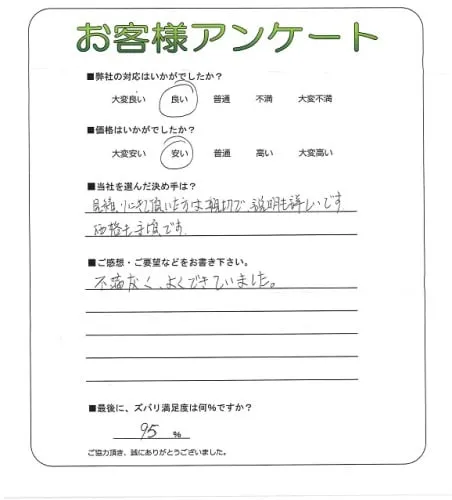 お客様アンケート
■弊社の対応はいかがでしたか？
大変良い 良い 普通 不満 大変不満
■価格はいかがでしたか？
大変安い 安い 普通 高い 大変高い
■当社を選んだ決め手は？
見積りにきて頂いた方は親切で、説明も詳しいです
価格も手頃です.
■ご感想・ご要望などをお書き下さい。
不満なく、よくできていました。
■最後に、ズバリ満足度は何%ですか？
95 %
ご協力頂き、誠にありがとうございました。